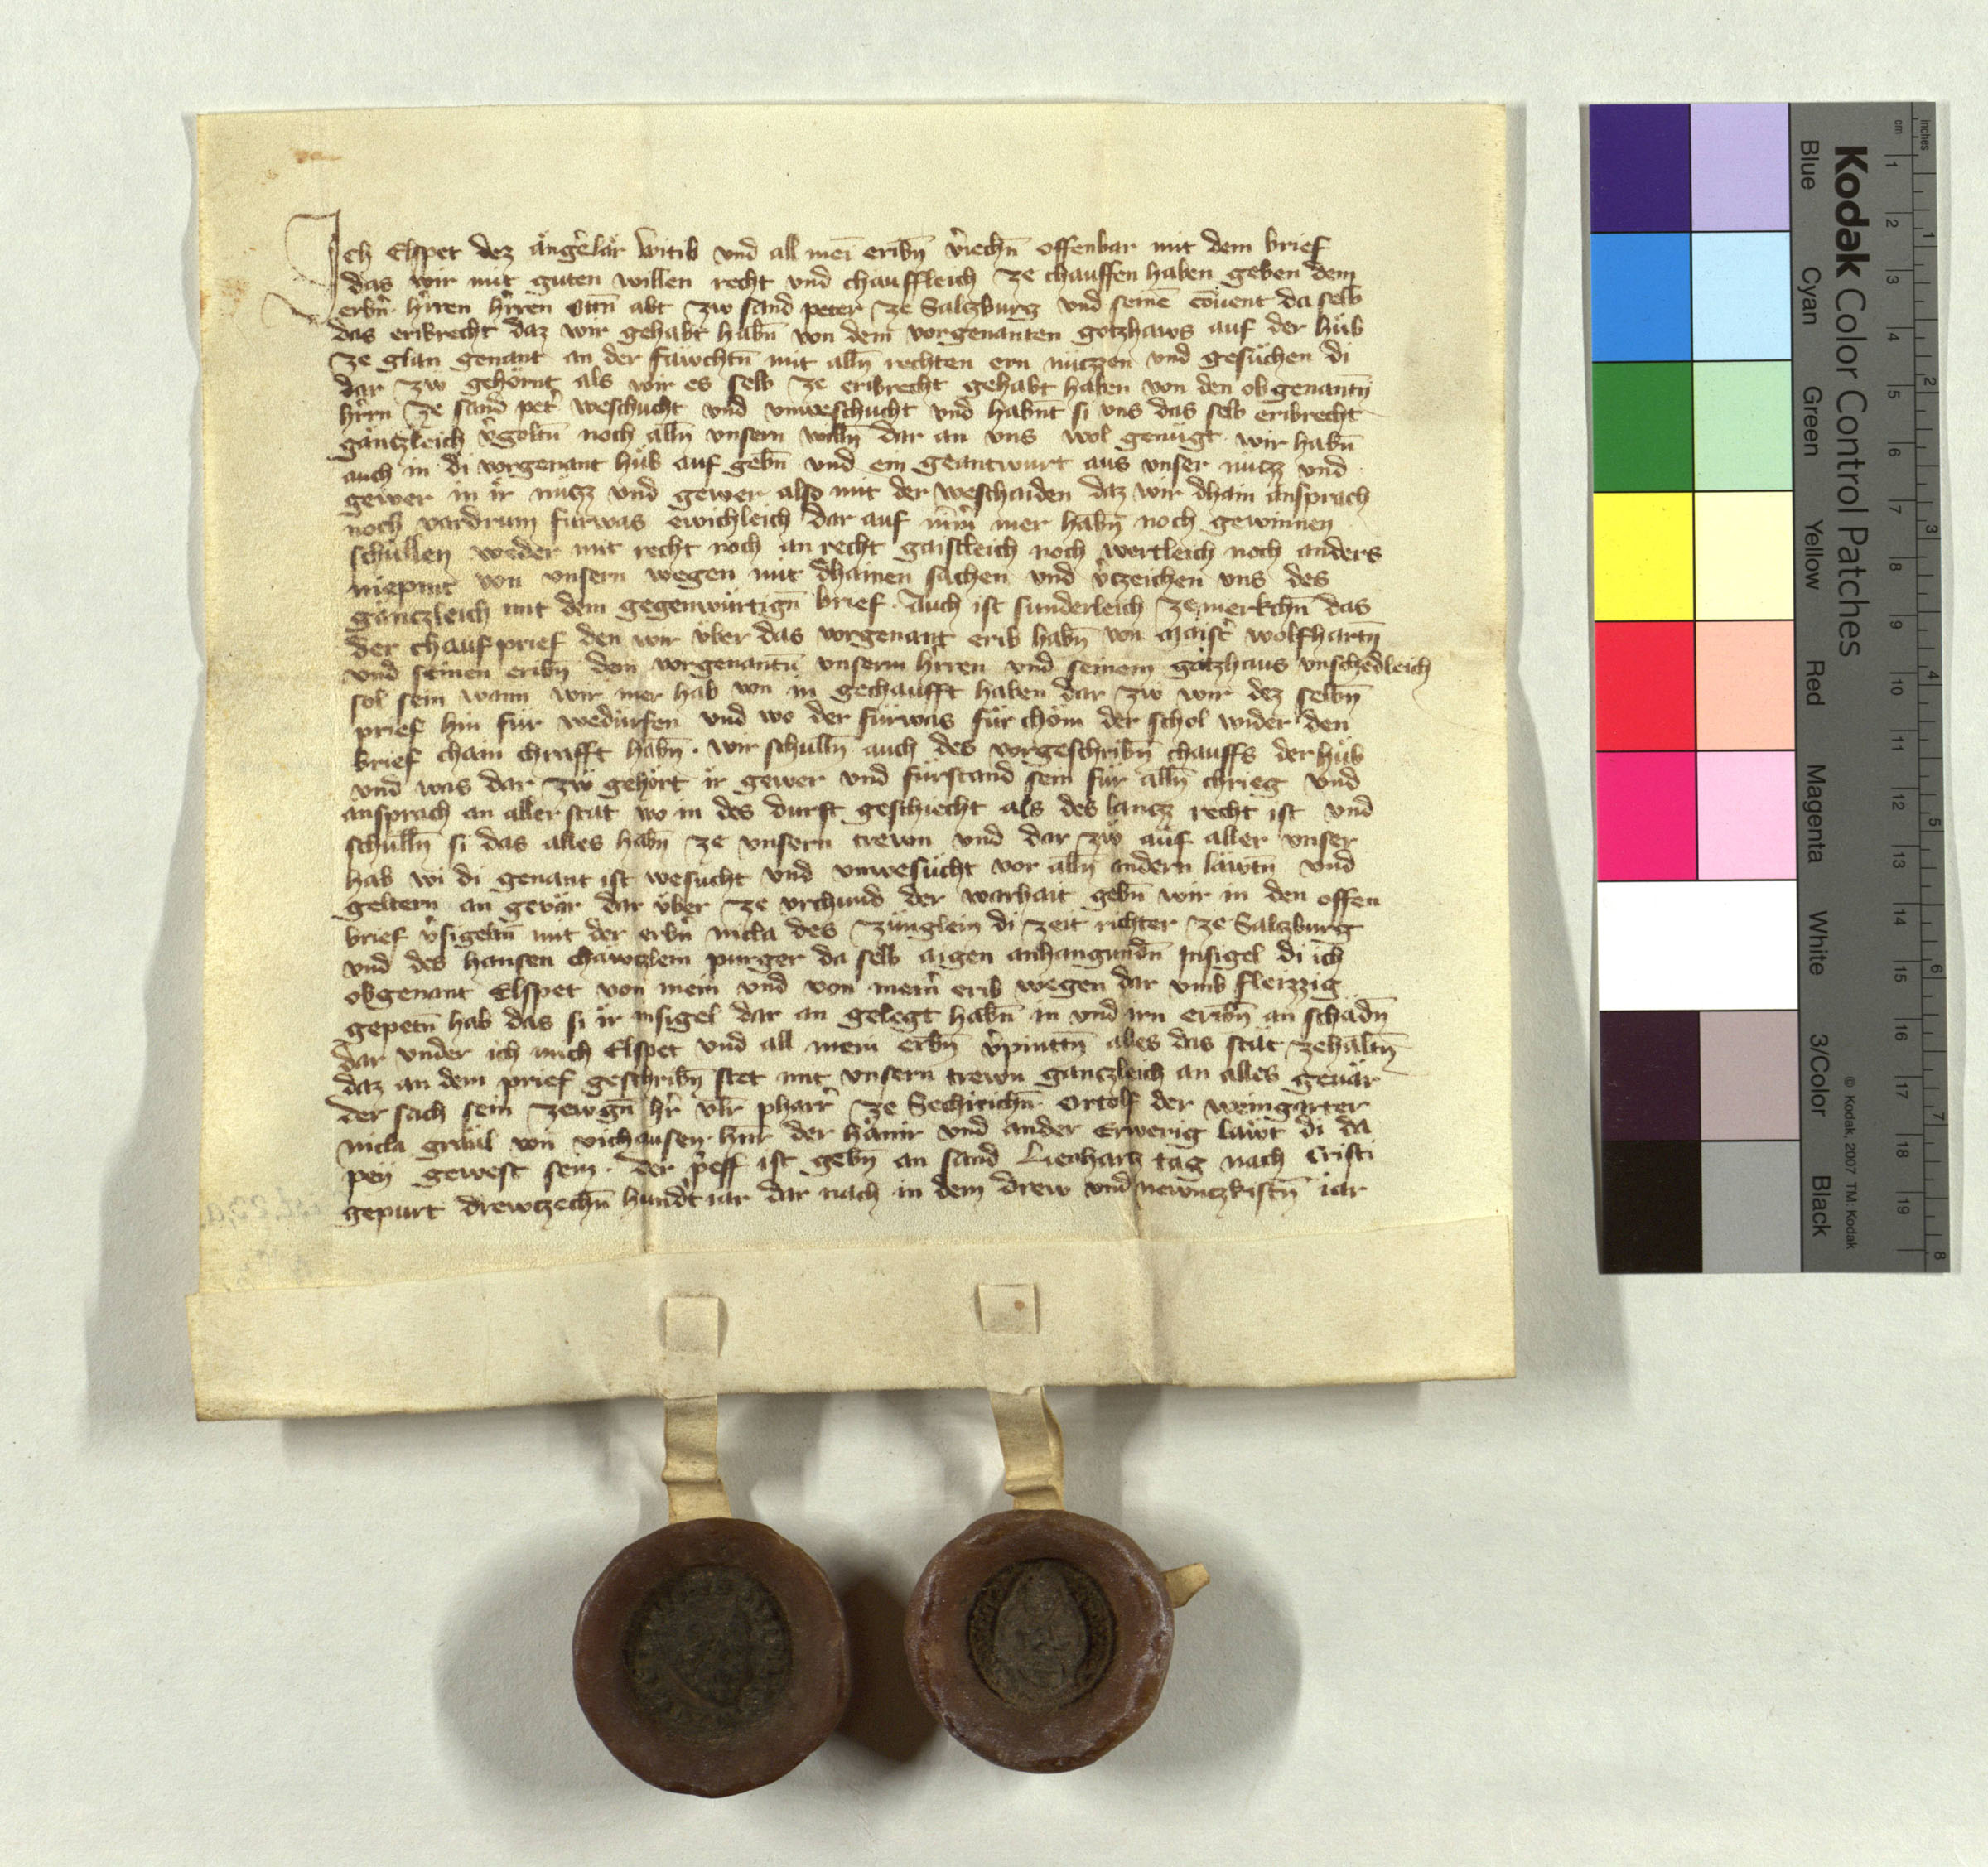 Ich Elspet dez ängerlär witib vnd all mei eribn̄ v̓iechn̄ offenbar mit dem brief
das wir mit guten willen recht vnd chauffleich ze chauffen haben geben dem
erbn̓ hr̓ren hr̓ren Ottn̄ abt zw sand peter ze Salzburg vnd seinē couent da selb
das eribrecht daz wir gehabt habn̄ von dem vorgenanten gotzhaws auf der hůb
ze glan genant an der fäwchtn̄ mit alln̄ rechten ern nüczzen vnd gesüchen di
dar zw gehörnt als wir es selb ze eribrecht gehabt haben von den obgenantn̄
hr̓rn ze sand pet̓ weschucht vnd vnweschucht vnd habnt si vns das selb eribrecht
gäntzleich v̓goltn̄ noch alln̄ vnsern willn̄ dar an vns wol genügt wir habn̄
auch in di vorgenant hůb auf gebn̄ vnd ein geantwurt aus vnser nücz vnd
gewer in ir nücz vnd gewer also mit der weschaiden daz wir dhain ansprach
noch vardrum fürwas ewichleich dar auf nīm̓ mer habn̄ noch gewinnen
schüllen weder mit recht noch an recht gaistleich noch wertleich noch anders
niepmt von vnsern wegen mit dhainen sachen vnd v̓czeichen vns des
gäntczleich mit dem gegenwürtign̄ brief. Auch ist sunderleich ze merkchn̄ das
der chauf prief den wir über das vorgenant erib habn̄ von Maist̓ wolfhartn̄
vnd seinen eribn̄ dem vorgenantn̄ vnserm hr̓ren vnd seinem gotzhaus vnschedleich
sol sein wann wir mer hab von in gechaufft haben dar zw wir dez selbn̄
prief hin für wedürfen vnd wo der fürwas für chöm der schol wider den
brief chain chrafft habn̄. wir schulln̄ auch des vorgeschribn̄ chauffs der hůb
vnd was dar zw gehört ir gewer vnd fürstand sein für alln̄ chrieg vnd
ansprach an aller stat wo in des durft geschiecht als des lancz recht ist vnd
schulln̄ si das alles habn̄ ze vnsern trewn vnd dar zw auf aller vnser
hab wi di genant ist wesücht vnd vnwesücht vor alln̄ andern läwtn̄ vnd
geltern an gevär dar über ze vrchund der warhait gebn̄ wir in den offen
brief v̓sigeltn̄ mit der erbn̓ nicla des zünglein di zeit richter ze Salczburg
vnd des hansen chäwczlein purger da selb aigen anhangundn̄ insigel di ich
obgenant Elspet von mein vnd von mein̓ erib wegen dar vmb fleizzig
gepetn̄ hab das si ir insigel dar an gelegt habn̄ in vnd irn eribn̄ an schadn̄
dar vnder ich mich Elspet vnd all mein erbn̄ v̓pinttn̄ alles das stät ze haltn̄
daz an dem prief geschribn̄ stet mit vnsern trewn gantczleich an alles gevär
der sach sein zewgn̄ hr̓ vlr̄ pharr̓ ze Sechirichn̄ Ortolf der weingarter
nicla gräul von vichausen hnr̄ der hämr vnd ander Erwerig läwt di da
peÿ gewest sein. der p̓eff ist gebn̄ an sand Lienhartz tag nach Cristi
gepurt drewczechn̄ hundt̓ iar dar nach in dem drew vnd newnczkistn̄ iar
Kodak Color Control Patches
Blue Cyan Green Yellow Red Magenta White 3/Color Black
© Kodak, 2007 TM: Kodak
cm 1 2 3 4 5 6 7 8 9 10 11 12 13 14 15 16 17 18 19
inches 1 2 3 4 5 6 7 8